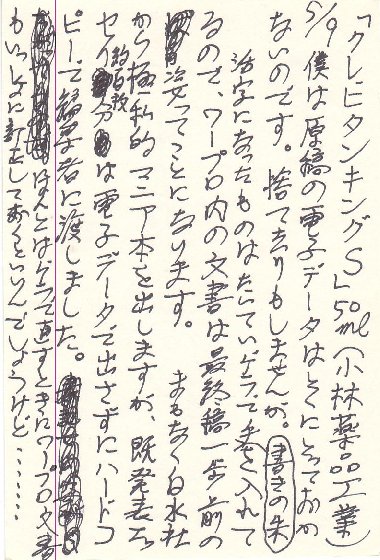 「クレヒタンキングS」50ml(小林薬品工業)
5/9 僕は原稿の電子データはとくにとっておか
ないのです。捨て去りもしませんが。書きの朱
活字になったものはたいていゲラで手を入れて
るので、ワープロ内の文書は最終稿一歩前の
姿ってことになります。 まもなく白水社
から極私的マニア本を出しますが、既発表エッ
セイ約百枚分は電子データで出さずにハードコ
ピーで編集者に渡しました。
ほんとはゲラで直すときにワープロ文書
もいっしょに訂正しておくといいんでしょうけど………